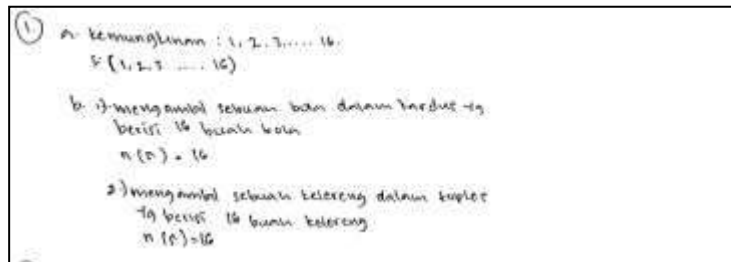 1. a. kemungkinan : 1, 2, 3, .... 16.
S {1, 2, 3 .... 16}
b. 1) mengambil sebuah bola dalam kardus yg
berisi 16 buah bola
n (S) = 16
2) mengambil sebuah kelereng dalam toples
yg berisi 16 buah kelereng
n (S) = 16